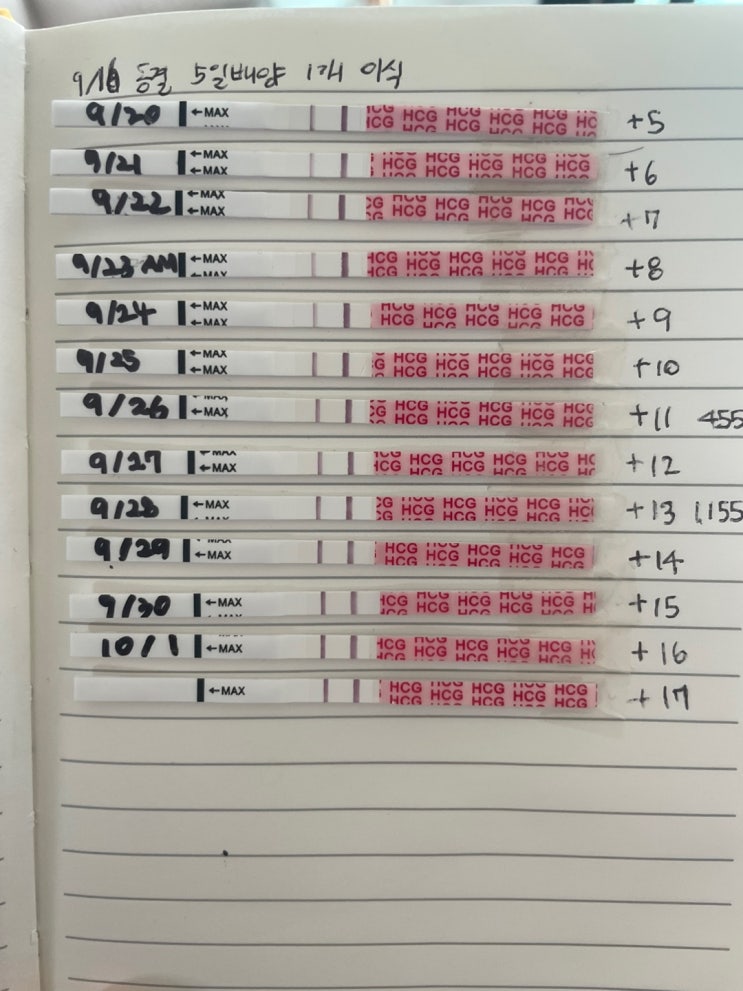 9/16 동결 5일배양 1개 이식
9/20 ←MAX HCG HCG HCG HCG HCG HCG HCG +5
9/21 ←MAX ←MAX HCG HCG HCG HCG HCG HCG HCG HCG +6
9/22 ←MAX ←MAX HCG HCG HCG HCG +7
9/23 AM ←MAX HCG HCG HCG HCG HCG +8
9/24 ←MAX ←MAX HCG HCG HCG HCG HCG +9
9/25 ←MAX ←MAX HCG HCG HCG HCG +10
9/26 ←MAX HCG HCG HCG HCG +11 455
9/27 ←MAX ←MAX HCG HCG HCG HCG +12
9/28 ←MAX HCG HCG HCG HCG +13 1,155
9/29 ←MAX HCG HCG HCG HCG HCG +14
9/30 ←MAX HCG HCG HCG HCG HCG +15
10/1 ←MAX HCG HCG HCG HCG HCG +16
←MAX HCG HCG HCG HCG HCG HCG HCG HCG +17